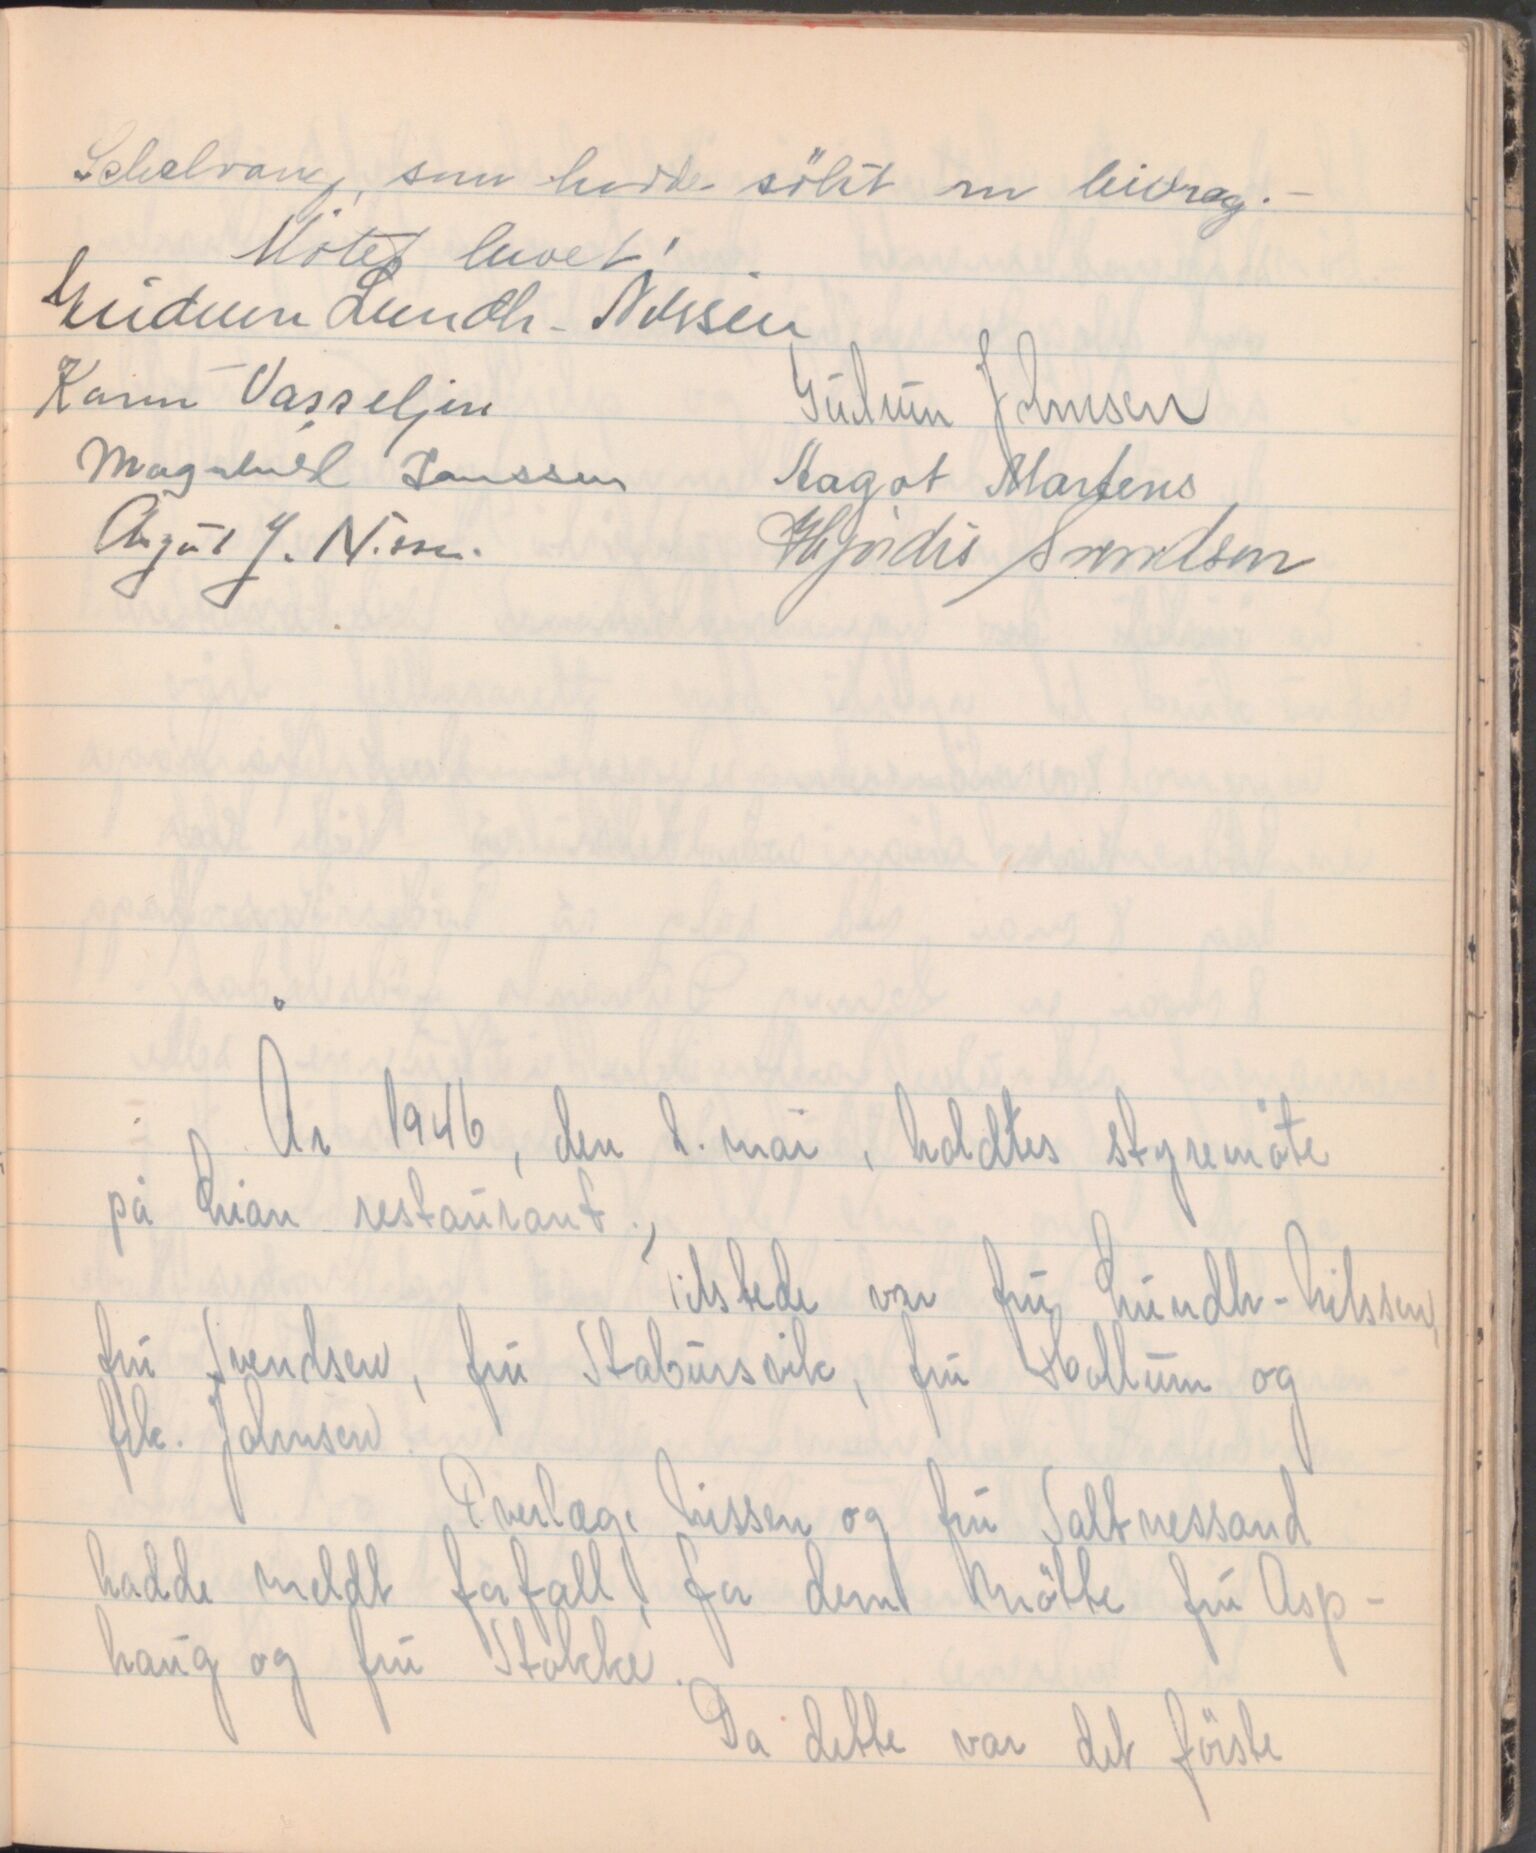 Schelvang, som hadde søkt om bidrag. -
Møtet hevet!
Gudrun Lundh-Nilssen
Karin Vasseljen Gudrun Johnsen
Magnhild Janssen Aagot Martens
August J. Nissen. Hjördis Svendsen
År 1946, den 2. mai, holdtes styremøte
på Lian restaurant.
Tilstede var frú Lúndh-Nilssen,
frú Svendsen, frú Stabúrsvik, frú Hollúm og
frk. Johnsen.
Overlæge Nissen og frú Saltnessand
hadde meldt forfall, for dem møtte frú Asp-
haúg og frú Stokke.
Da dette var det første